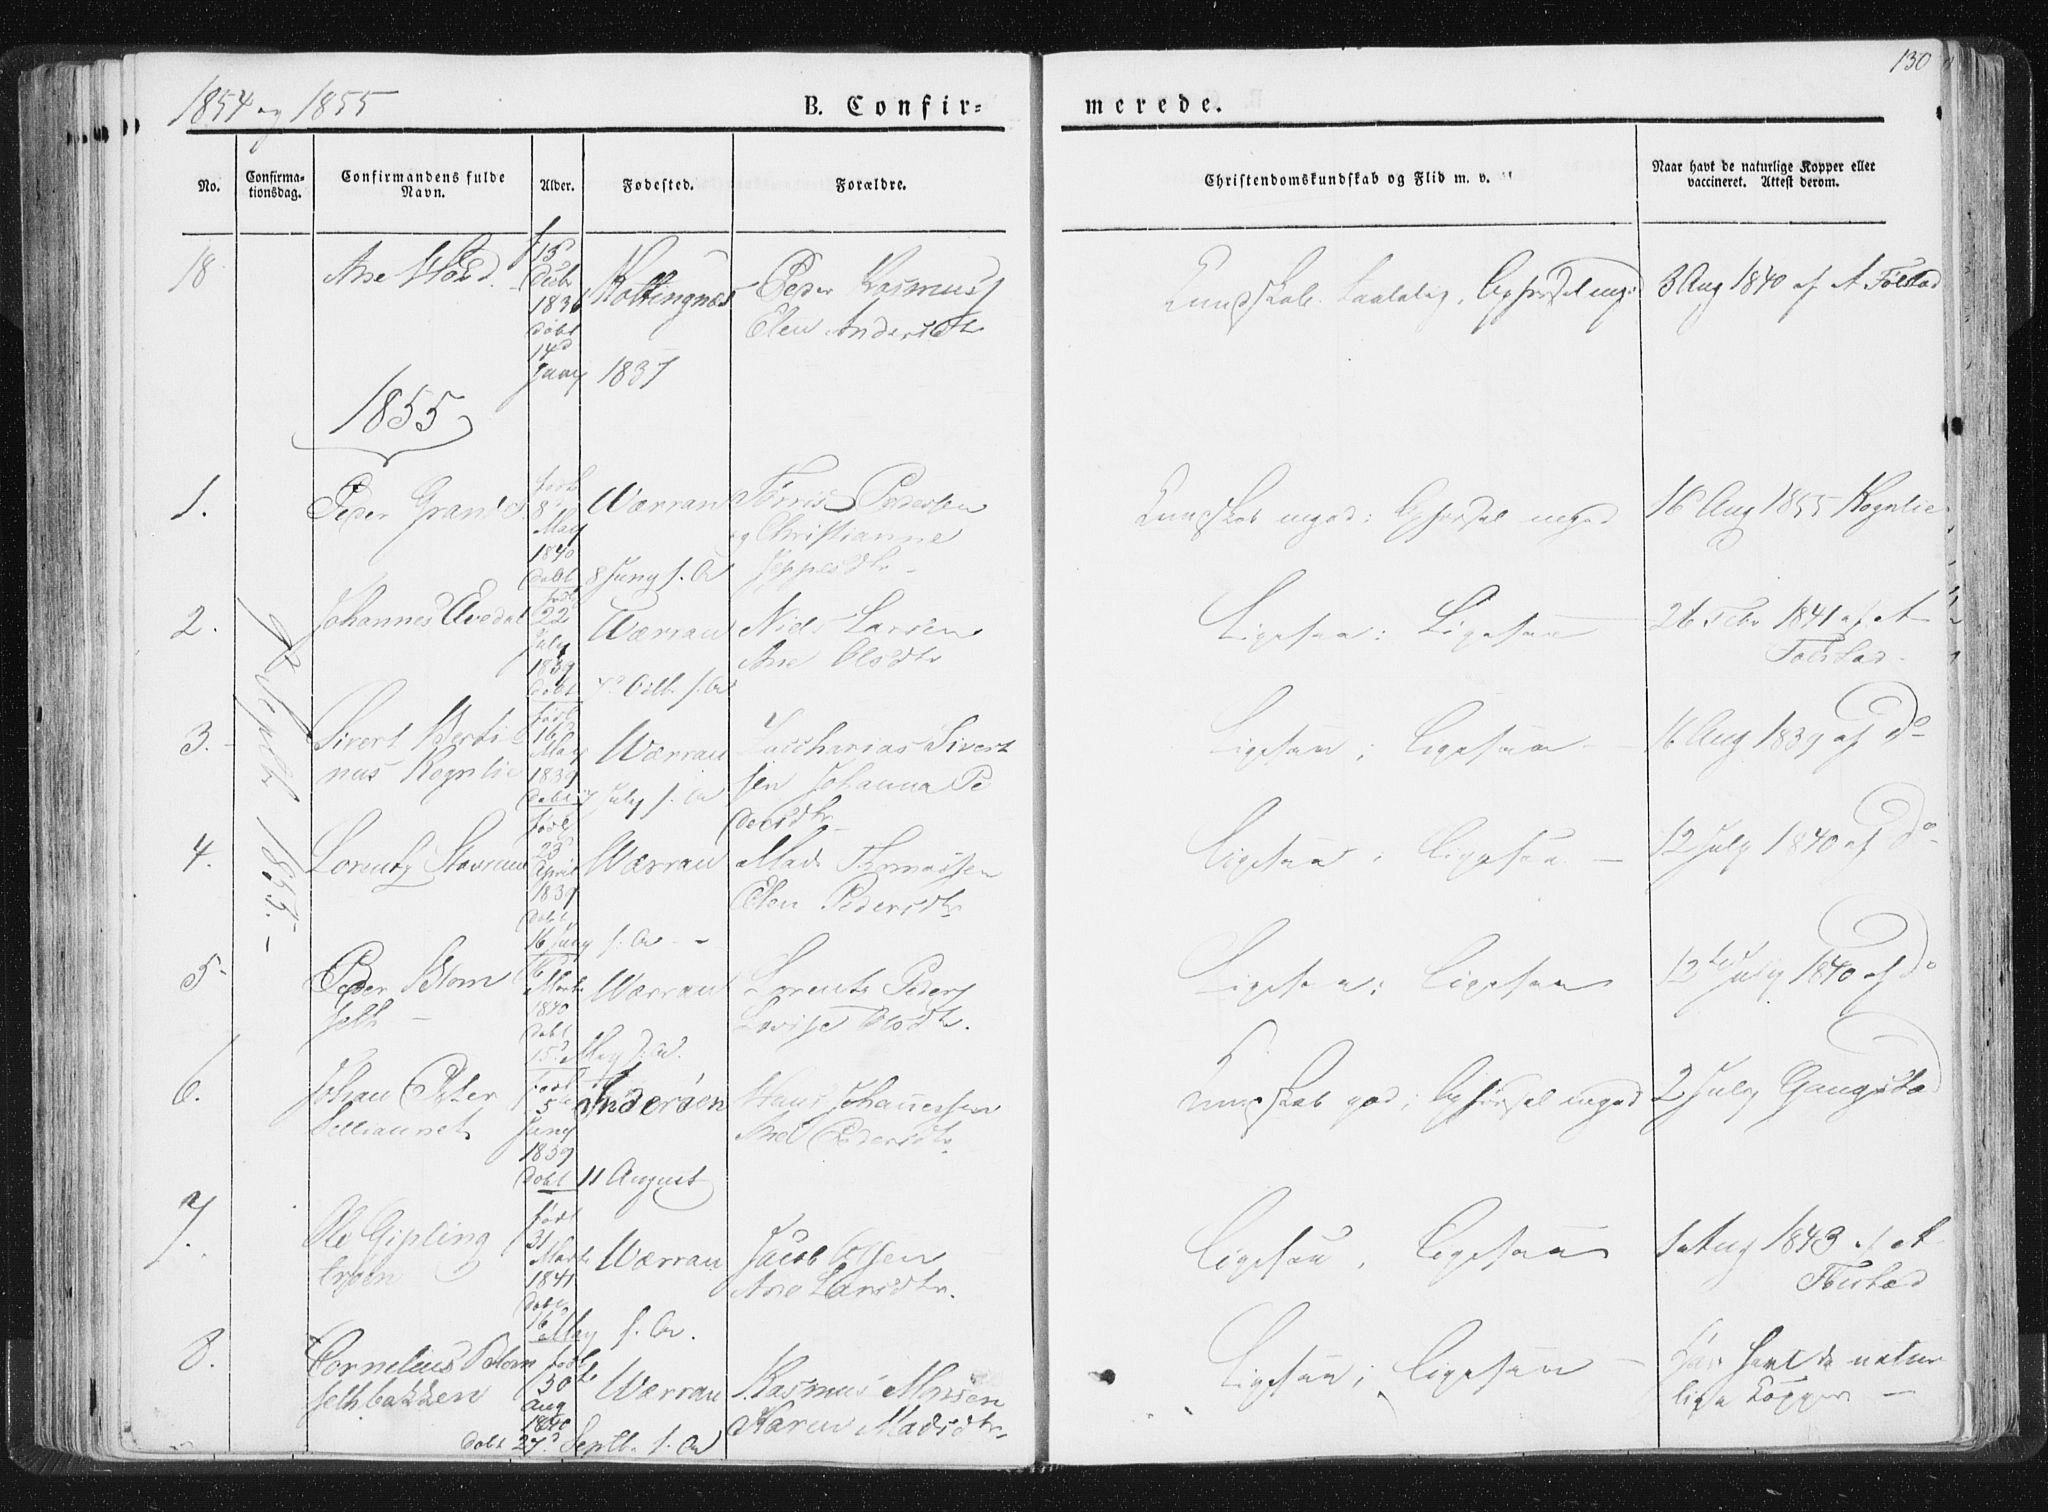 130
1854 og 1855
B. Confir=
merede.
No.
Confirma-
tionsdag.
Confirmandens fulde
Navn.
Alder.
Fødested.
Forældre.
Christendomskundskab og Flid m. v.
Naar havt de naturlige Kopper eller
vaccineret. Attest derom.
18
Ane
f
15d
Decbr
1836
døbt
14d
Juny 1837
Kottingnæs
Peder Rasmus
Elen Andersdtr
Kundskab taalelig, Opførsel mgod
3 Aug 1840 af A Følstad
1855
Septbr 1855.
1.
Peder Grand
født
8
May
1840
døbt 8 Juny s. Ar
Værran
Tørris Pedersen
og Christianne
Jeppesdtr
Kundskab mgod: Opførsel mgod
16 Aug 1855 Rognlie
2.
Johannes Avedal
født
22
July
1839
døbt 7d Octb. s. Ar
Værran
Niels Larsen
Ane Olsdtr
Ligesaa: Ligesaa
26 Febr 1841 af A
Følstad
3.
Sivert Berti
nus Rognlie
født
16
May
1839
døbt 7 July s. Ar
Værran
Zaccharias Sivert
sen Johanna Pe
dersdtr
Ligesaa; Ligesaa
16 Aug 1839 af Do
4.
Lorentz Stavrand
født
25
April
1839
døbt
16 Juny s. Ar
Værran
Mads Thomassen
Elen Pedersdtr
Ligesaa; Ligesaa
12 July 1840 af Do
5.
Peder Blom
Jelth
Marts
1840
døbt
15d May s. Ar.
Værran
Lorents Peders
Lovise Olsdtr.
Ligesaa; Ligesaa
12te July 1840 af Do
6.
Johan Peter
født
5te
Juny
1839
døbt 11 August
Inderøen
Hans Johannessen
Ane Pedersdtr
Kundskab god; Opførsel mgod
2 July Gangstad
7.
Ole Gipling
født
31
Marts
1841
døbt
16d May s. Ar.
Værran
Jacob Olsen
Ane Larsdtr.
Ligesaa, Ligesaa
1 Aug 1843 af A
Følstad
8.
Cornelius Blom
Jelthbakken
født
30te
Aug
1840
døbt 27d Septb. s. Ar
Værran
Rasmus Monsen
Karen Madsdtr
Ligesaa; Ligesaa
har havt de natur
lige Kopper